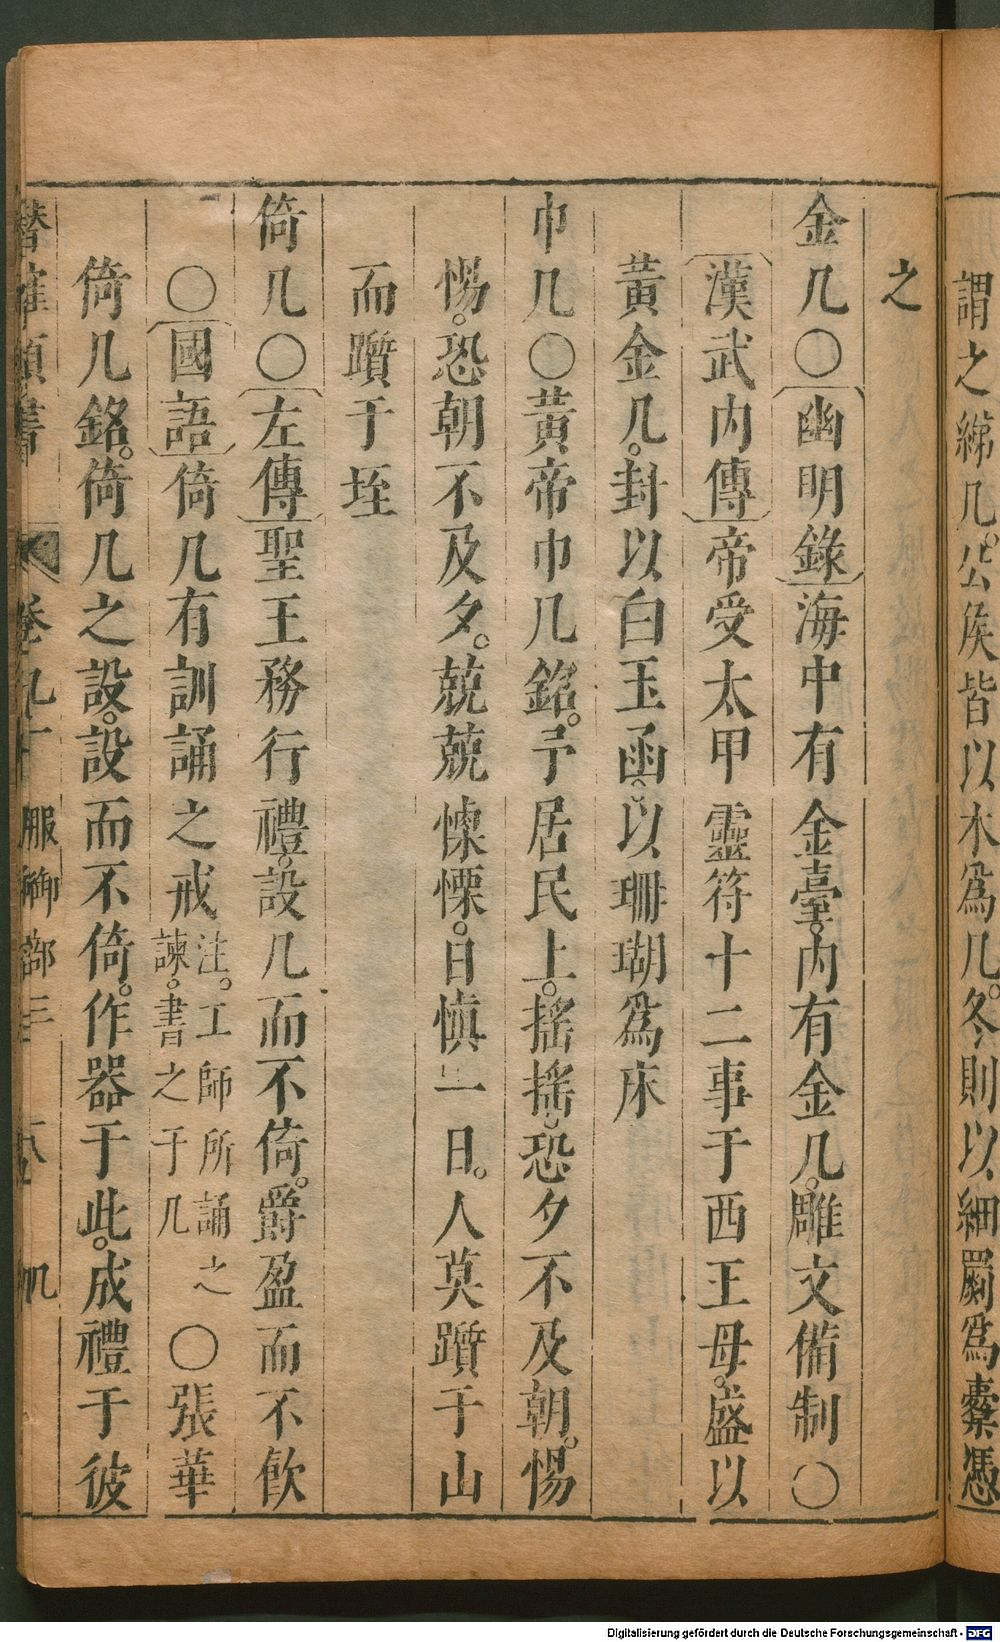 謂之綈几。公侯皆以木爲几。冬則以細罽爲橐憑
之
金几〇幽明錄海中有金臺。內有金几。雕文備制〇
漢武內傳帝受太甲靈符十二事于西王母。盛以
黃金几。封以白玉函。以珊瑚爲床
巾几〇黃帝巾几銘。予居民上。搖搖。恐夕不及朝。惕
惕。恐朝不及夕。兢兢慄慄。日慎一日。人莫躓于山
而躓于垤
倚几〇左傳聖王務行禮。設几而不倚。爵盈而不飲
〇國語倚几有訓誦之戒注。工師所誦之諫。書之于几〇張華
倚几銘。倚几之設。設而不倚。作器于此。成禮于彼
潛確類書 卷九十 服御部三 几
Digitalisierung gefördert durch die Deutsche Forschungsgemeinschaft - DFG